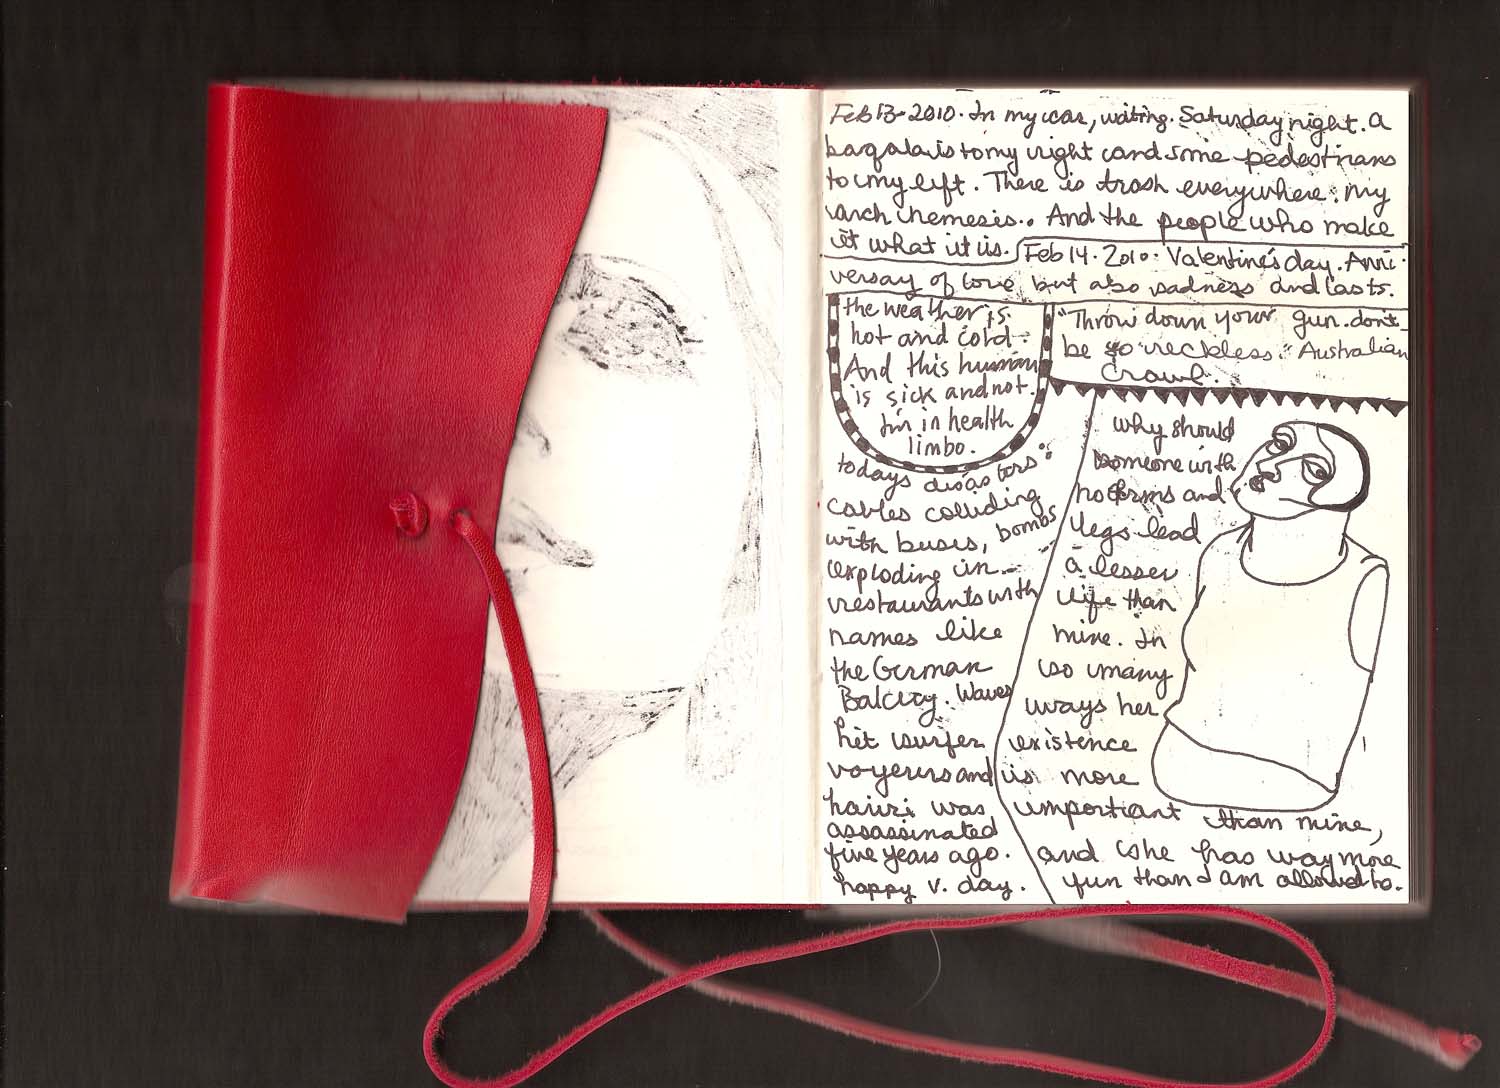 Feb 13 - 2010. In my car, waiting. Saturday night. A
baqala is to my right and some pedestrians
to my left. There is trash everywhere: my
arch nemesis.. And the people who make
it what it is.
Feb 14. 2010. Valentine's day. Anni-
versay of love but also sadness and lasts.
the weather is
hot and cold.
And this human
is sick and not.
I'm in health
limbo.
"Throw down your gun. don't
be so reckless." Australian
Crawl.
todays disastors:
cables colliding
with buses, bombs
exploding in
restaurants with
names like
the German
Bakery. Waves
hit surfer
voyeurs and
hariri was
assassinated
five years ago.
happy v. day.
why should
someone with
no arms and
legs lead
a lesser
life than
mine. In
so many
ways her
existence
is more
important than mine,
and she has way more
fun than I am allowed to.